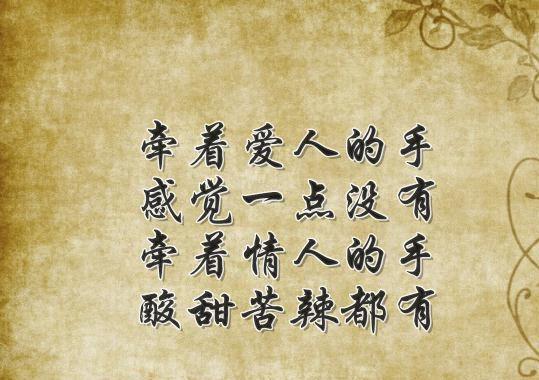 牵着爱人的手
感觉一点没有
牵着情人的手
酸甜苦辣都有